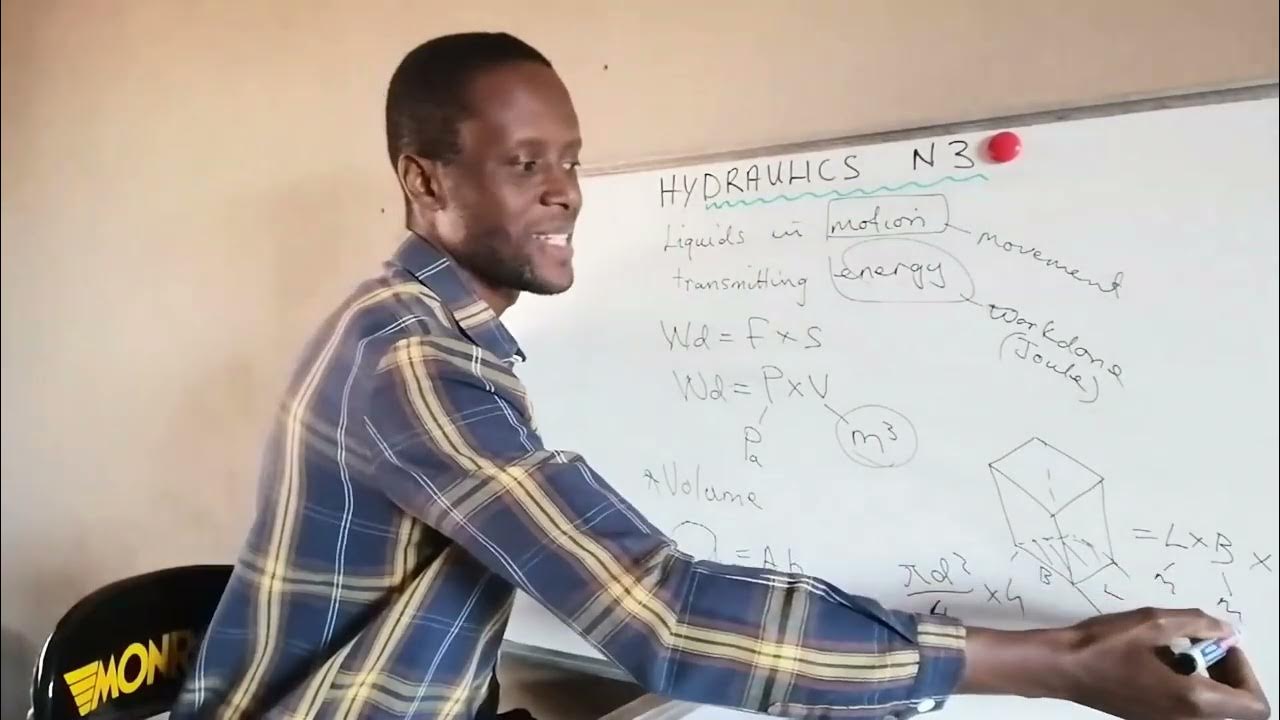 HYDRAULICS N3
Liquids in motion movement
transmitting energy Workdone
(Joule)
Wd = F x S
Wd = P x V
Pa m³
*Volume
= Ah
πd²
4 x h
B L
= L x B x
m m
MONR